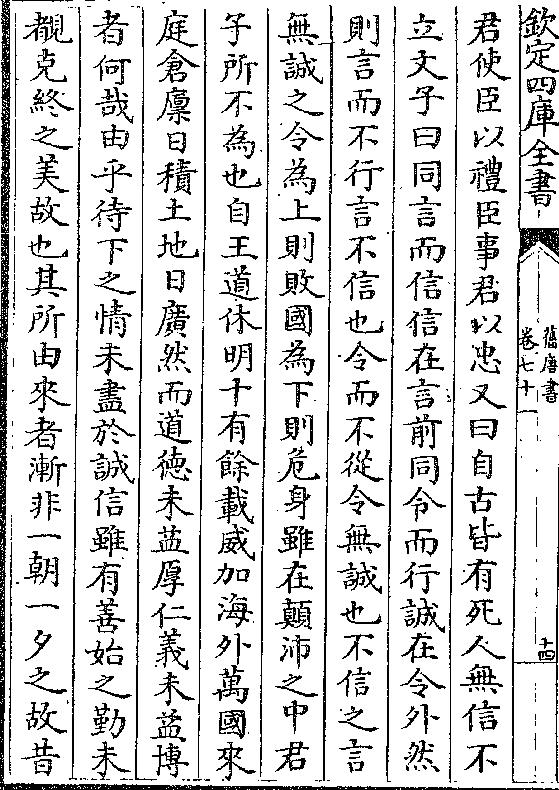 欽定四庫全書
舊唐書
卷七十一
十四
君使臣以禮臣事君以忠又曰自古皆有死人無信不
立文子曰同言而信信在言前同令而行誠在令外然
則言而不行言不信也令而不從令無誠也不信之言
無誠之令為上則敗國為下則危身雖在顛沛之中君
子所不為也自王道休明十有餘載威加海外萬國來
庭倉廩日積土地日廣然而道德未益厚仁義未益博
者何哉由乎待下之情未盡於誠信雖有善始之勤未
覩克終之美故也其所由來者漸非一朝一夕之故昔